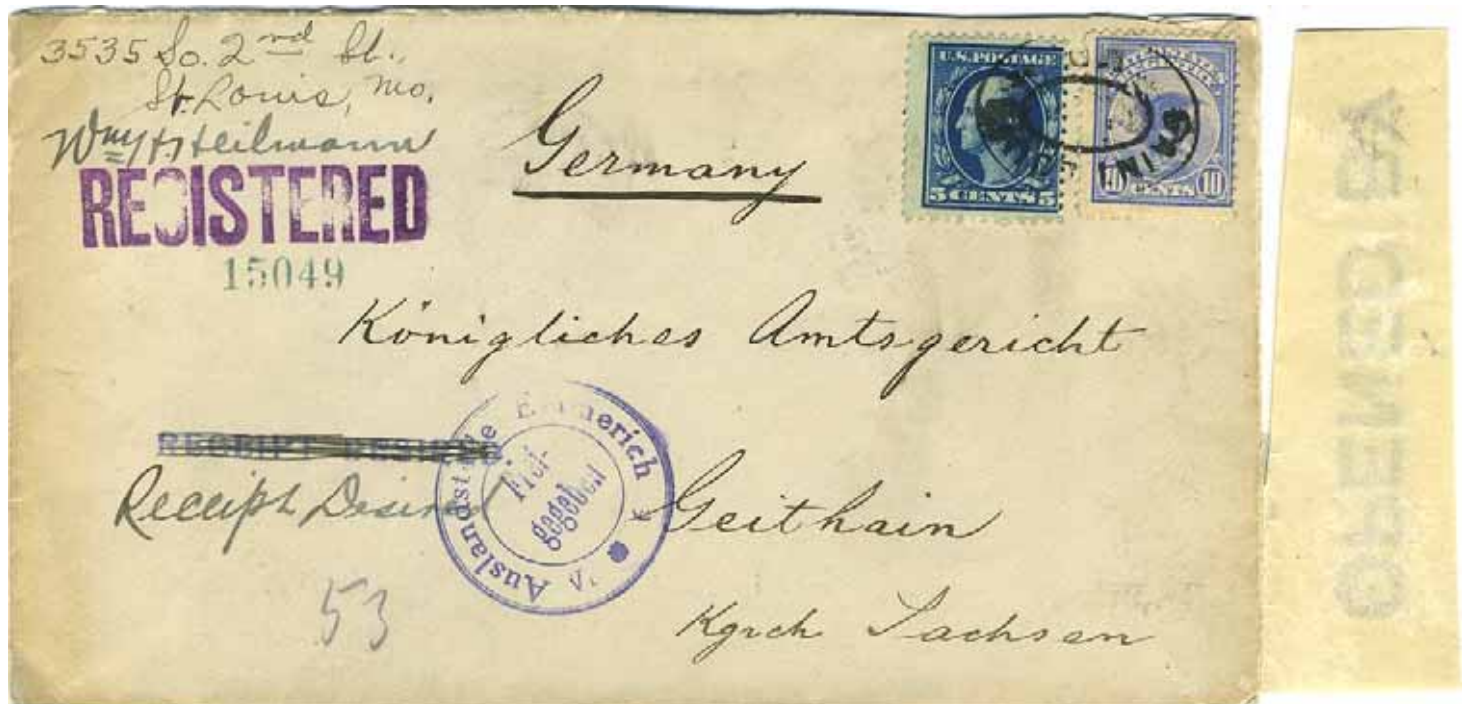 3535 So. 2nd St.,
St. Louis, Mo.
Wm H Heilmann
REGISTERED
15049
Germany
U.S. POSTAGE
5 CENTS 5
10 CENTS 10
Königliches Amtsgericht
RECEIPT DESIRED
Receipt Desired
Auslandstelle Emmerich
Frei-
gegeben
Geithain
Kgrch Sachsen
53
OPENED BY